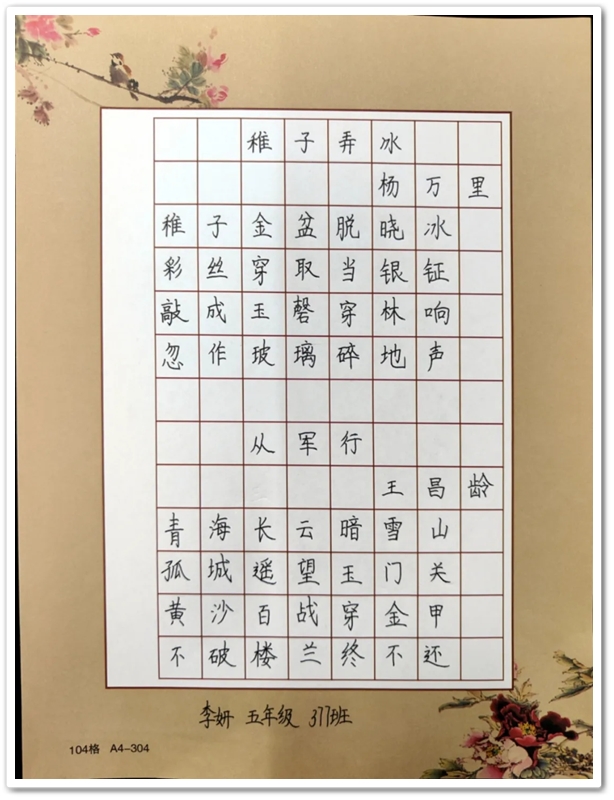 稚子弄冰
杨万里
稚子金盆脱晓冰
彩丝穿取当银钲
敲成玉磬穿林响
忽作玻璃碎地声
从军行
王昌龄
青海长云暗雪山
孤城遥望玉门关
黄沙百战穿金甲
不破楼兰终不还
李妍 五年级 377班
104格 A4-304